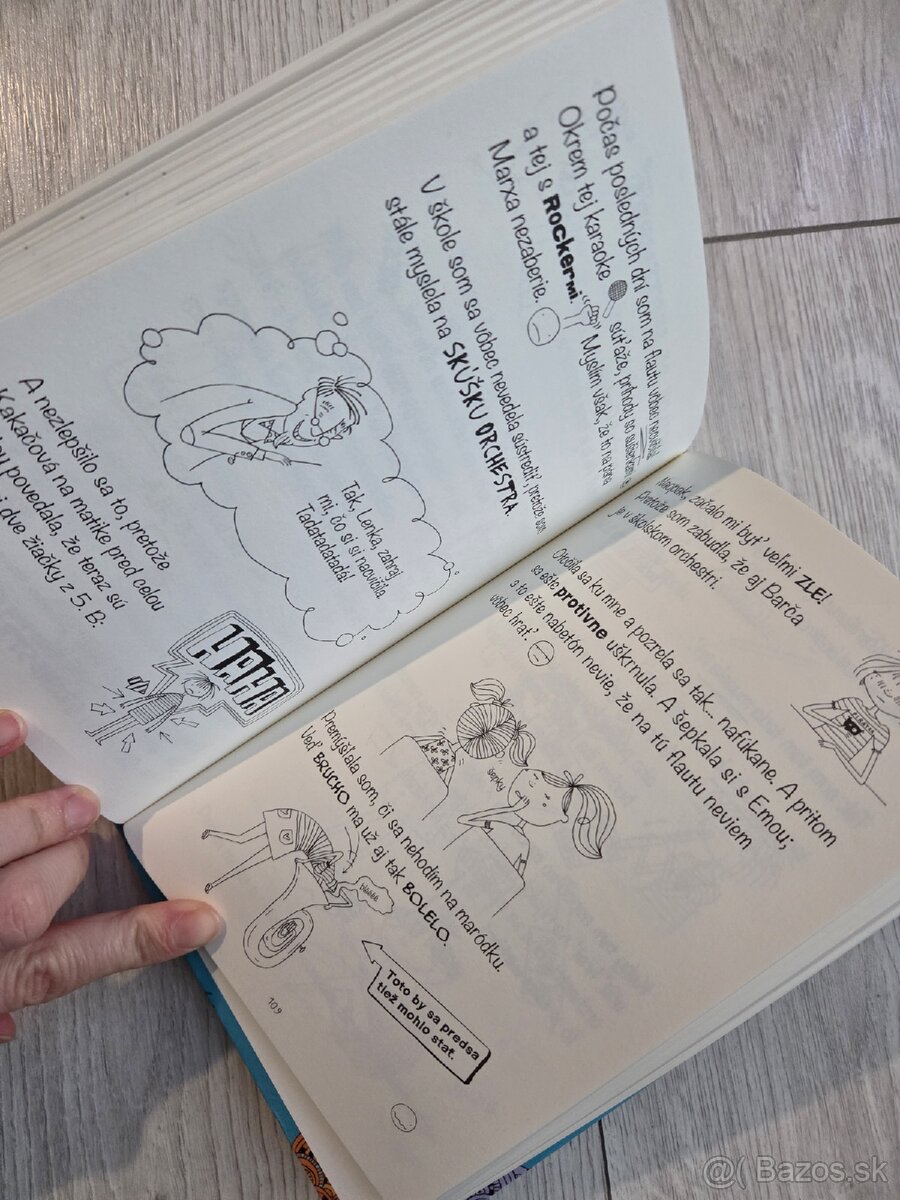 Počas posledných dní som na flautu vôbec necvičila.
Okrem tej karaoke súťaže, príhody so sušienkami
a tej s Rockermi. Myslím však, že to na pána
Marxa nezaberie.
V škole som sa vôbec nevedela sústrediť, pretože som
stále myslela na SKÚŠKU ORCHESTRA.
Tak, Lenka, zahraj
mi, čo si si nacvičila.
Tadatadatada!
A nezlepšilo sa to, pretože
Kakačová na matike pred celou
povedala, že teraz sú
dve žiačky z 5. B.
HAHA
Naopak, začalo mi byť veľmi ZLE!
Pretože som zabudla, že aj Barča
je v školskom orchestri.
Otočila sa ku mne a pozrela sa tak... nafúkane. A pritom
sa ešte protivne uškrnula. A šepkala si s Emou;
a to ešte nabetón nevie, že na tú flautu neviem
vôbec hrať.
šepky
Premýšľala som, či sa nehodím na maródku.
Veď BRUCHO ma už aj tak BOLELO.
Toto by sa predsa
tiež mohlo stať.
109
@( Bazos.sk